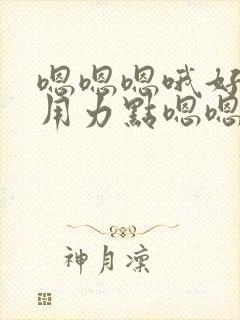 嗯嗯嗯哦好
用力點嗯嗯
神月凜